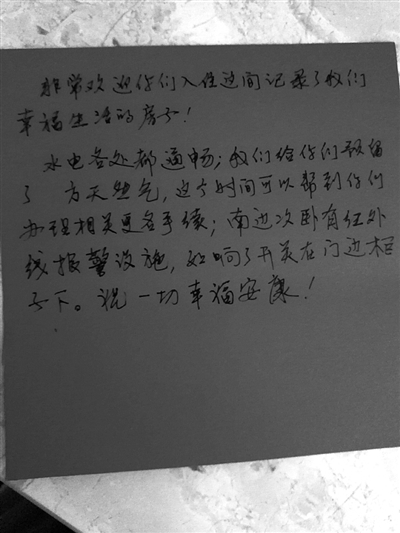 非常欢迎你们入住这间记录了我们
幸福生活的房子!
水电各处都通畅;我们给你们预留
了 方天然气,这个时间可以帮到你们
办理相关更名手续;南边次卧有红外
线报警设施,如响了开关在门边柜
子下。祝一切幸福安康!